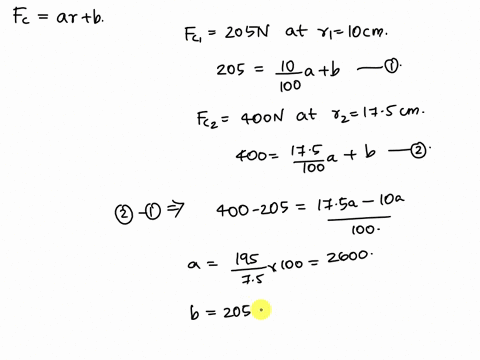 Fc = ar+b.
Fc₁ = 205N at r₁=10cm.
205 = 10/100 a+b —①.
Fc₂ = 400N at r₂=17.5cm.
400 = 17.5/100 a + b —②.
②-①⇒ 400-205 = 17.5a-10a/100.
a = 195/7.5 x100 = 2600.
b = 205